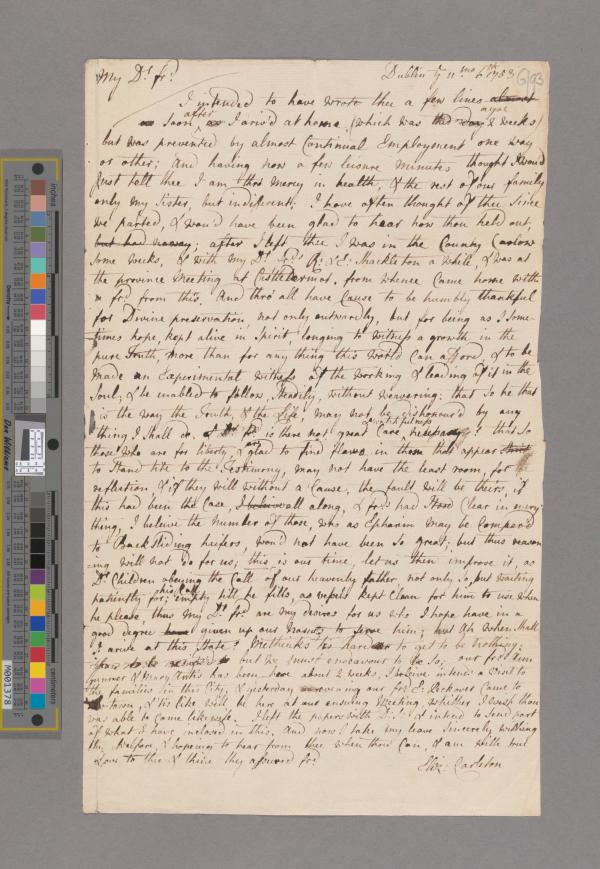 My Dr. fr.
Dublin ye 11mo 6th 1753
I intended to have wrote thee a few lines almost
as soon after as I ariv'd at home, (which was two days & weeks ago)
but was prevented by almost Continual Employment one way
or other; And having now a few leisure minutes thought I woud
Just tell thee I am thro mercy in health, & the rest of our family
only my Sister, but indifferent; I have often thought of thee Since
we parted, & wou'd have been glad to hear how thou held out,
but had no way; after I left thee I was in the County Carlow
Some weeks, & with my Dr. frds R: & E: Shackleton a while, & was at
the province Meeting at Castledermot, from whence Came home with
frd from this. And thro' all have Cause to be humbly thankful
for Divine preservation not only outwardly, but for being as I Some-
times hope, kept alive in Spirit, longing to witness a growth in the
pure Truth, more than for any thing this World Can afford, & to be
made an Experimental witness of the working & leading of it in the
Soul; & be enabled to follow Steadily, without wavering: that So he that
is the way the Truth, & the Life, may not be dishonour'd by any
thing I shall do. Dr. frd is there not great Care, & watchfulness necessary? that So
those who are for liberty, & are glad to find flaws in them that appear Strict
to Stand tite to the Testimony, may not have the least room, for
reflection & if they will without a Cause, the fault will be theirs, if
this had been the Case, I believe all along, & frds had Stood Clear in every
thing, I believe the number of those, who as Ephraim may be Compar'd
to Backsliding heifers, wou'd not have been So great; but thus reason
-ing will not do for us; this is our time, let us then improve it, as
Dr. Children obeying the Call of our heavenly father, not only So, but waiting
patiently for his Call; empty till he fills, as vessels kept Clean for him to use when
he please, thus my Dr. frd are my desires for us who I hope have in a
good degree given up our Names to Serve him; but Oh when Shall
I arive at this State? Methinks tis hard to get to be Nothing;
but we must endeavour to be So; our frds Ann
Gunner & Mary Artis has been here about 2 weeks, I believe intends a visit to
the families in this City, & yesterday evening our frd E: Peckover Came to
town, & tis like will be here at our ensuing Meeting, whither I wish thou
was able to Come likewise. I left the papers with & intend to Send part
of what I have inclosed in this. And now I take my leave Sincerely wishing
thy Welfare, & hoping to hear from thee when thou Can, & am with true
Love to thee & thine thy assured frd
Eliz: Carleton
inches
centimetres
Don Williams
M001378